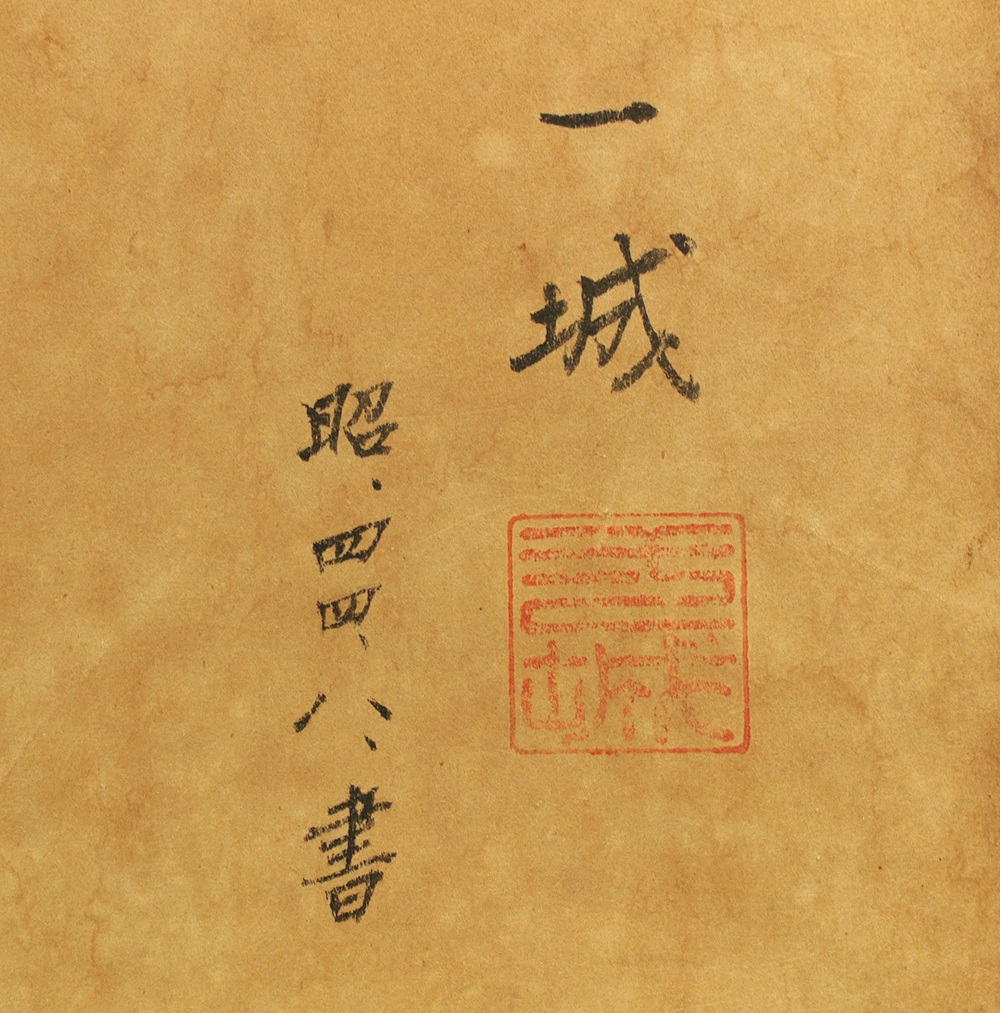 一城
昭.四四、八、書